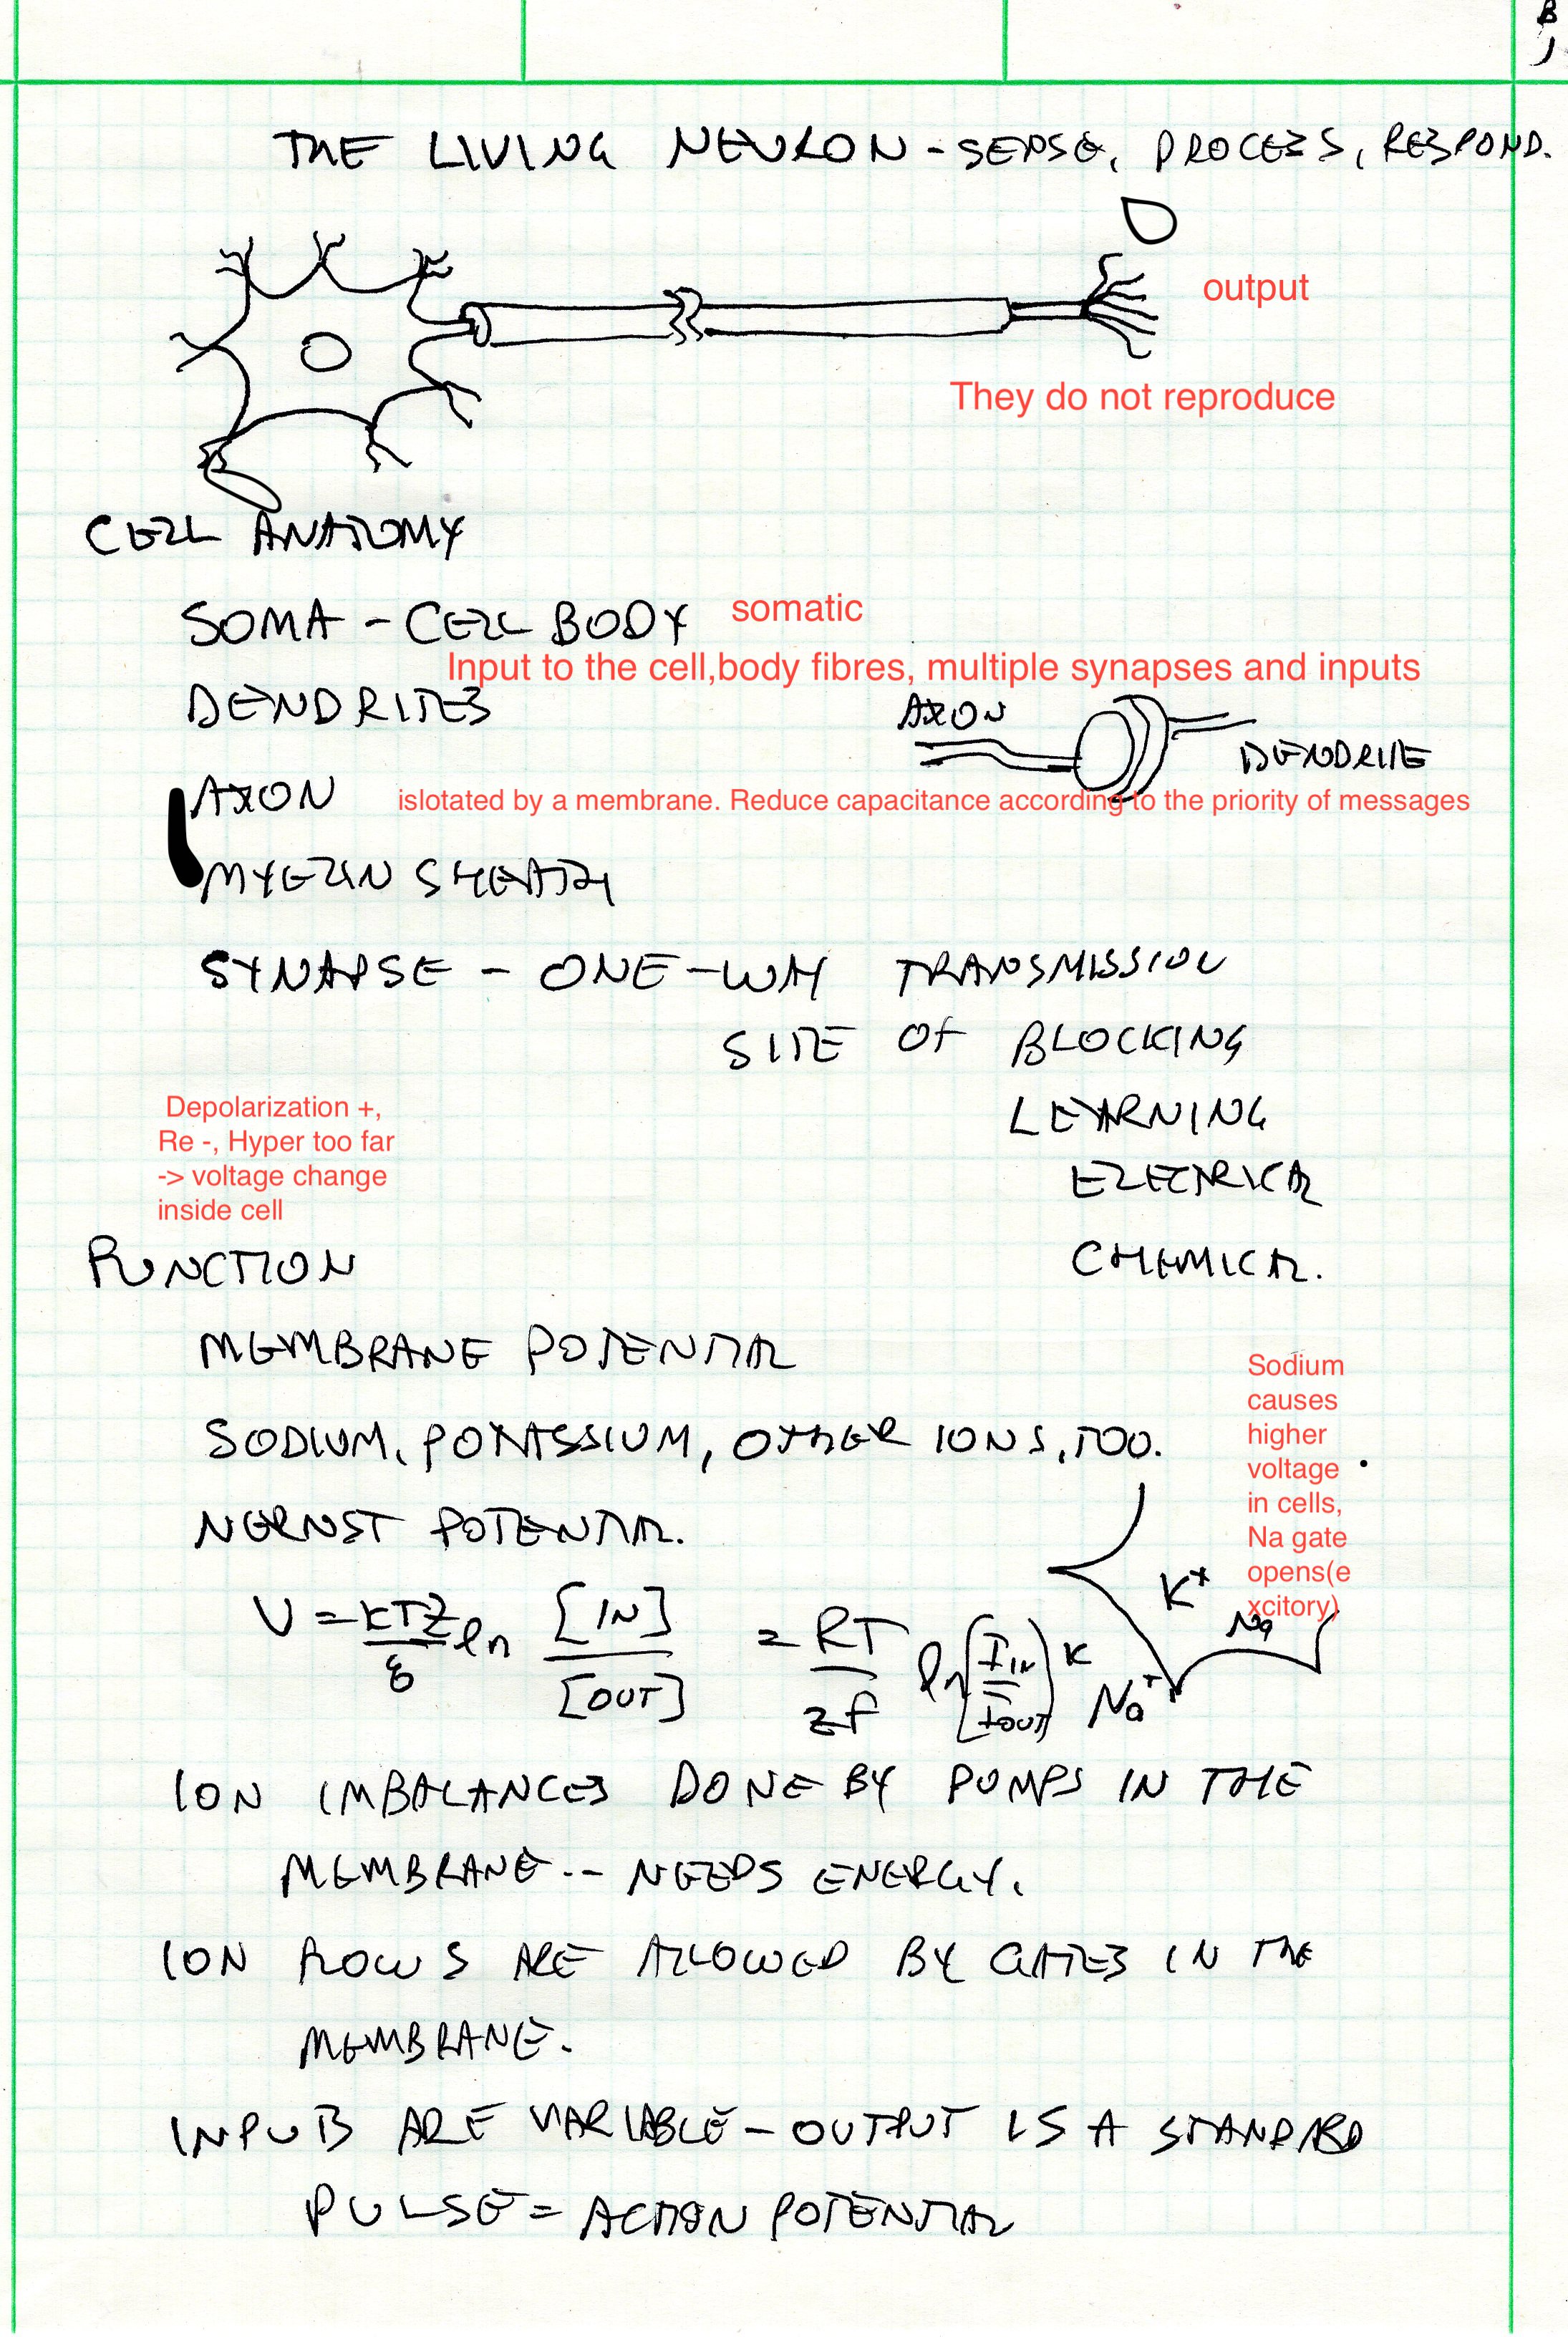 B
THE LIVING NEURON - SENSE, PROCESS, RESPOND.
output
They do not reproduce
CELL ANATOMY
SOMA - CELL BODY somatic
Input to the cell,body fibres, multiple synapses and inputs
DENDRITES
AXON
DENDRITE
AXON islotated by a membrane. Reduce capacitance according to the priority of messages
MYELIN SHEATH
SYNAPSE - ONE-WAY TRANSMISSION
SITE OF BLOCKING
LEARNING
ELECTRICAL
CHEMICAL.
Depolarization +,
Re -, Hyper too far
-> voltage change
inside cell
FUNCTION
MEMBRANE POTENTIAL
SODIUM, POTASSIUM, OTHER IONS, TOO.
Sodium
causes
higher
voltage
in cells,
Na gate
opens(e
xcitory)
NERNST POTENTIAL.
K+
Na
V = kTZ/q ln [IN]/[OUT] = RT/zF ln(IIN/IOUT) K Na+
ION IMBALANCES DONE BY PUMPS IN THE
MEMBRANE -- NEEDS ENERGY.
ION FLOWS ARE ALLOWED BY GATES IN THE
MEMBRANE.
INPUTS ARE VARIABLE - OUTPUT IS A STANDARD
PULSE = ACTION POTENTIAL